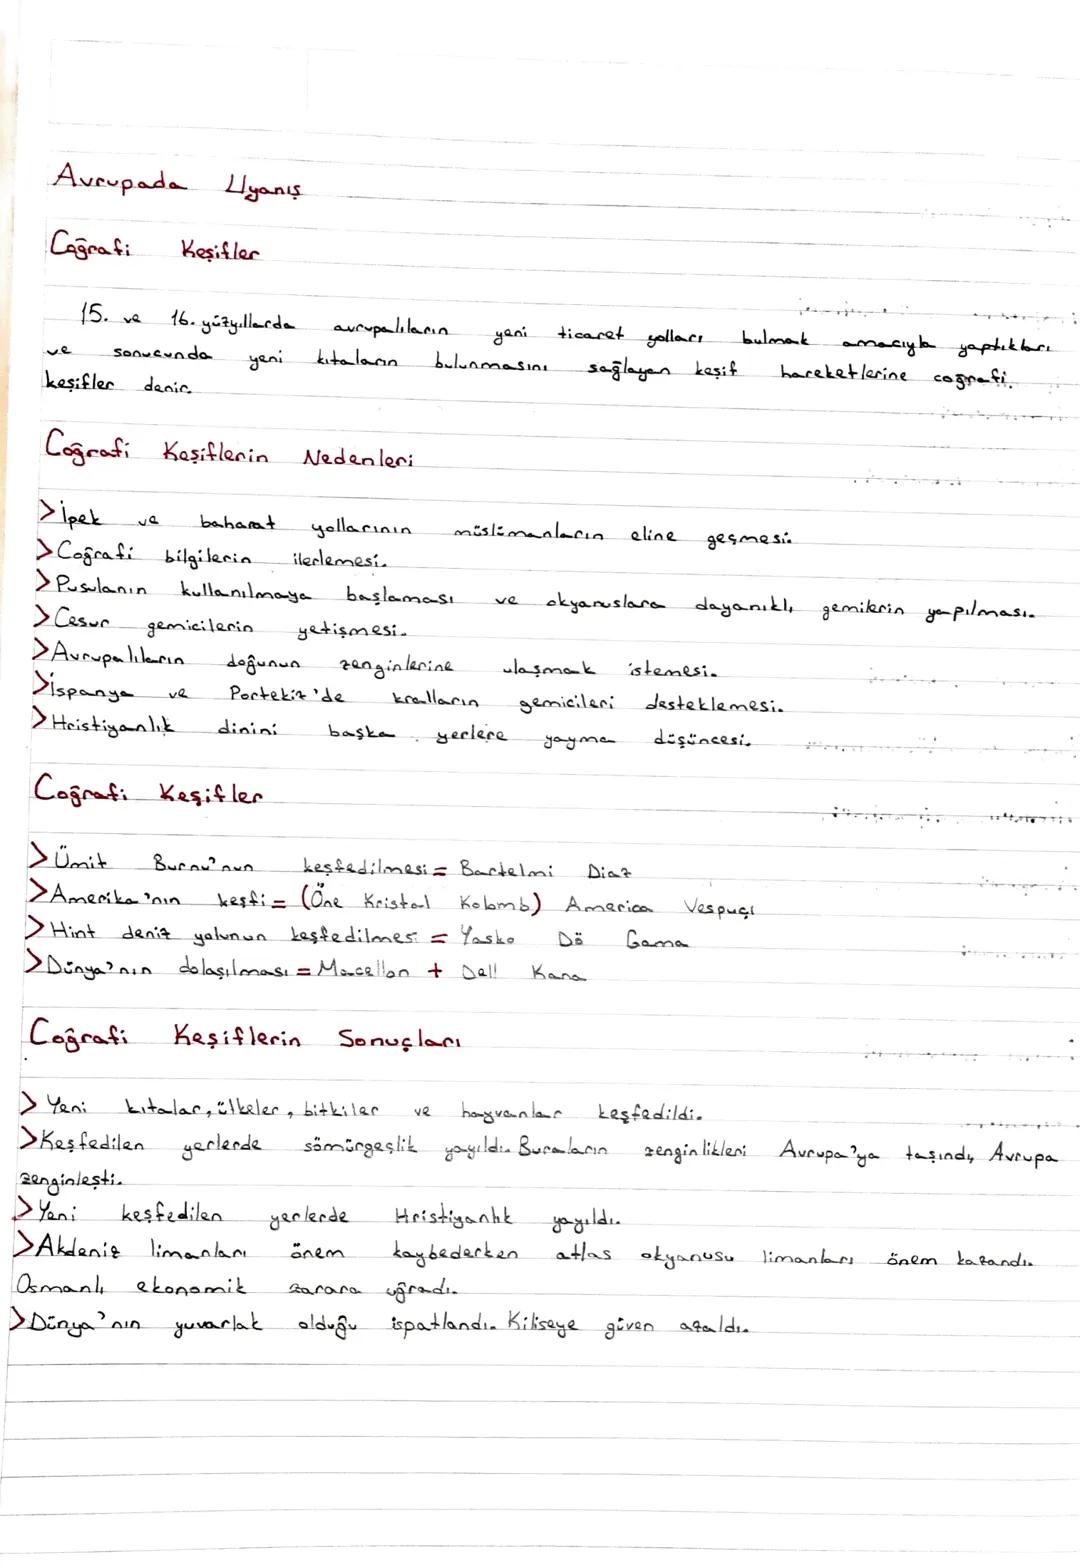 Avrupada Uyanış
Coğrafi Keşifler
15. ve 16. yüzyıllarda avrupalıların yeni ticaret yolları bulmak amacıyla yaptıkları
ve sonucunda yeni kıtaların bulunmasını sağlayan keşif hareketlerine coğrafi
keşifler denir.
Coğrafi Keşiflerin Nedenleri
>İpek ve baharat yollarının müslümanların eline geşmesi.
>Coğrafi bilgilerin ilerlemesi.
>Pusulanın kullanılmaya başlaması ve okyanuslara dayanıklı gemilerin yapılması.
>Cesur gemicilerin yetişmesi.
>Avrupalıların doğunun zenginlerine ulaşmak istemesi.
>İspanya ve Portekiz'de kralların gemicileri desteklemesi.
>Hristiyanlık dinini başka yerlere yayma düşüncesi.
Coğrafi Keşifler
>Ümit Burnu'nun keşfedilmesi = Bartelmi Diaz
>Amerika'nın keşfi = (Öne Kristal Kolomb) America Vespuçi
>Hint deniz yolunun keşfedilmesi = Vasko Dö Gama
>Dünya'nın dolaşılması = Macellan + Dell Kano
Coğrafi Keşiflerin Sonuçları
>Yeni kıtalar, ülkeler, bitkiler ve hayvanlar keşfedildi.
>Keşfedilen yerlerde sömürgeşlik yayıldı. Buraların zenginlikleri Avrupa'ya taşındı, Avrupa
zenginleşti.
>Yeni keşfedilen yerlerde Hristiyanlık yayıldı.
>Akdeniz limanları önem kaybederken atlas okyanusu limanları önem kazandı.
Osmanlı ekonomik zarara uğradı.
>Dünya'nın yuvarlak olduğu ispatlandı. Kiliseye güven azaldı.